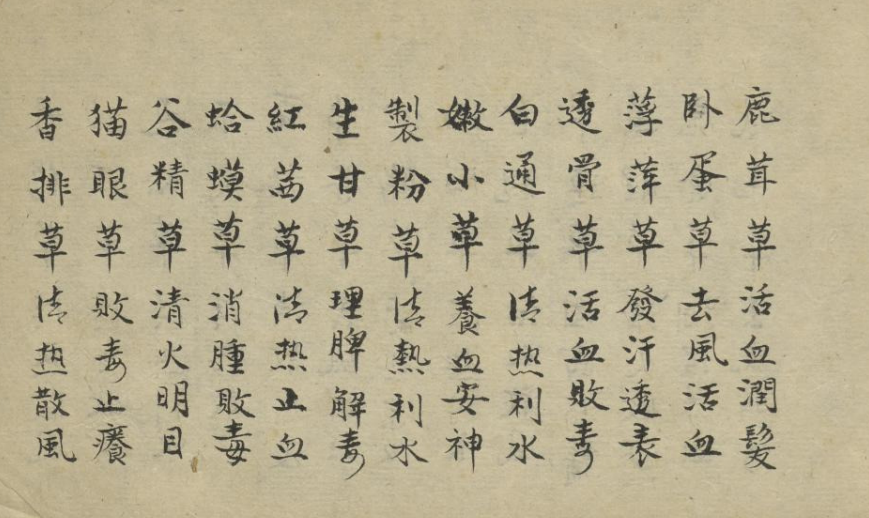 鹿茸草活血潤髮
卧蛋草去風活血
薄萍草發汗透表
透骨草活血敗毒
白通草清热利水
嫩小草養血安神
製粉草清熱利水
生甘草理脾解毒
紅茜草清热止血
蛤蟆草消腫敗毒
谷精草清火明目
猫眼草敗毒止癢
香排草清热散風